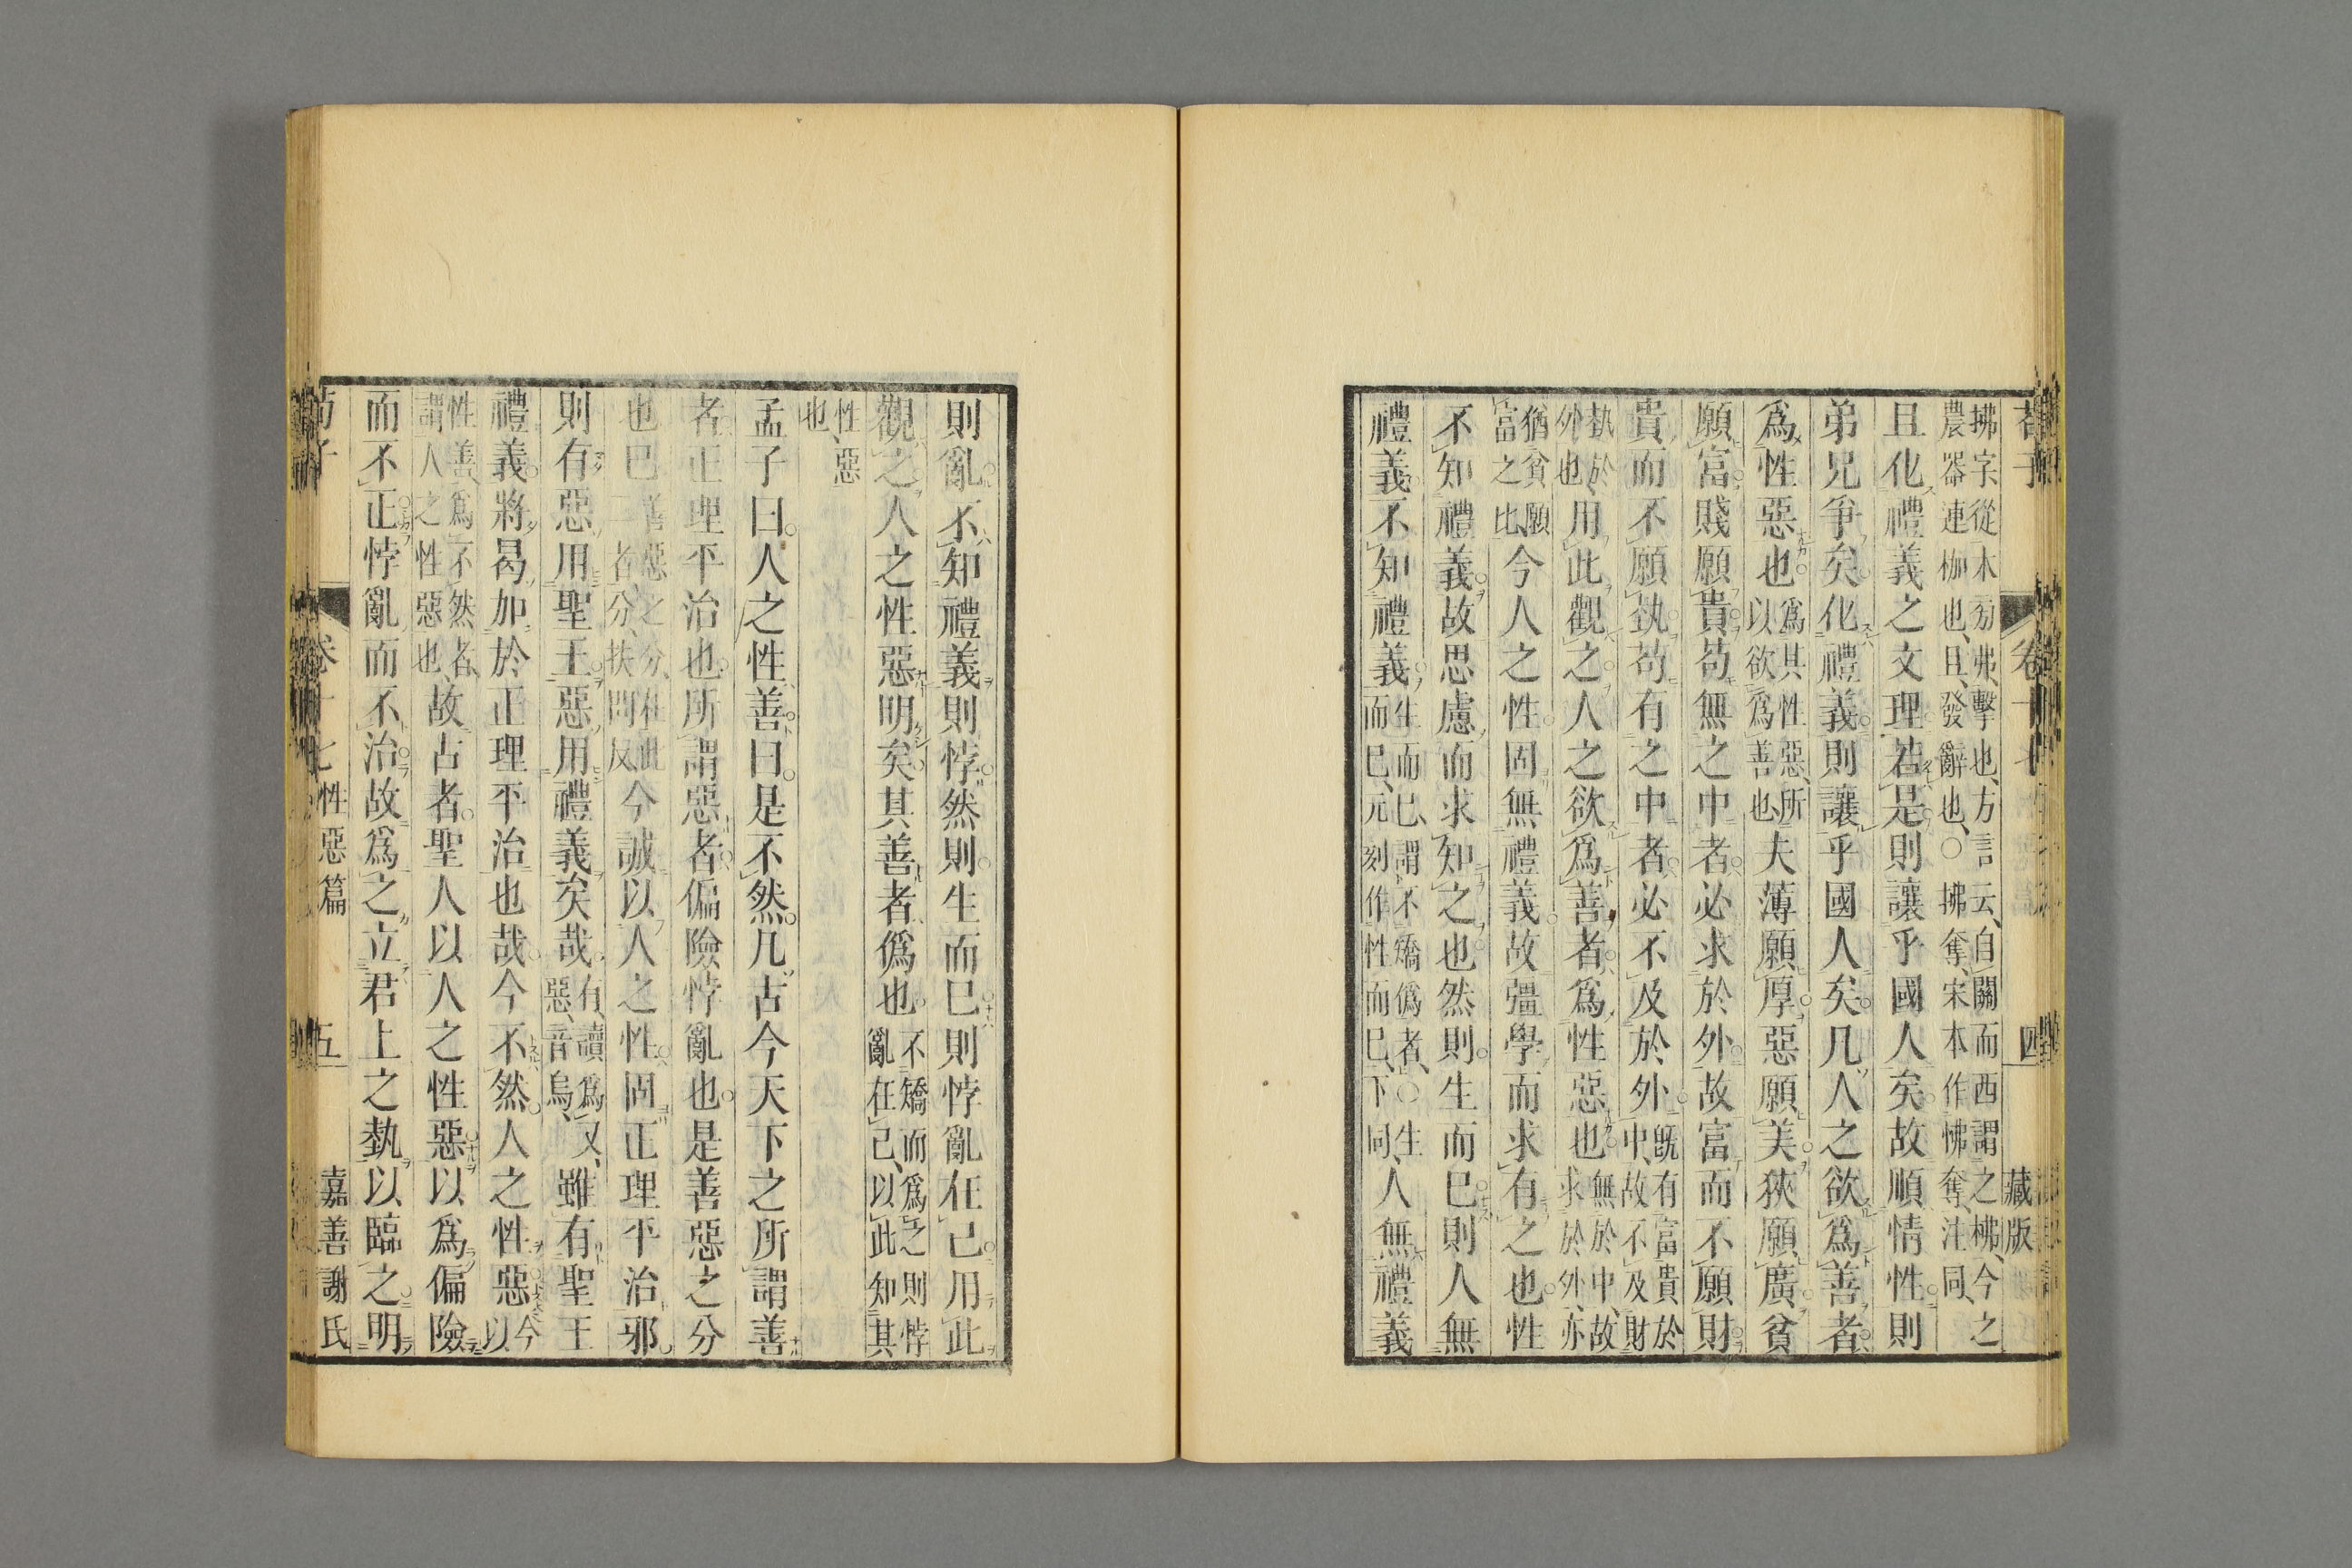 荀子 卷十七 四 藏版
拂字從木旁弗、擊也、方言云、自關而西謂之柫、今之
農器連枷也、且、發辭也、〇拂奪、宋本作怫奪、注同、
且化禮義之文理若是則讓乎國人矣故順情性則
弟兄爭矣化禮義則讓乎國人矣凡人之欲爲善者
爲性惡也爲其性惡、所以欲爲善也夫薄願厚惡願美狹願廣貧
願富賤願貴苟無之中者必求於外故富而不願財
貴而不願埶苟有之中者必不及於外既有富貴於中、故不及財
埶於外也、用此觀之人之欲爲善者爲性惡也無於中、故求於外、亦
猶貧願富之比、今人之性固無禮義故彊學而求有之也性
不知禮義故思慮而求知之也然則生而已則人無
禮義不知禮義生而已、謂不矯僞者、〇生而已、元刻作性而已、下同、人無禮義
則亂不知禮義則悖然則生而已則悖亂在己用此
觀之人之性惡明矣其善者僞也不矯而爲之則悖亂在己、以此知其
性惡也
孟子曰人之性善曰是不然凡古今天下之所謂善
者正理平治也所謂惡者偏險悖亂也是善惡之分
也已善惡之分、在此二者、分、扶問反、今誠以人之性固正理平治邪
則有惡用聖王惡用禮義矣哉有、讀爲又、惡、音烏、雖有聖王
禮義將曷加於正理平治也哉今不然人之性惡今以
性善、爲不然者、謂人之性惡也、故古者聖人以人之性惡以爲偏險
而不正悖亂而不治故爲之立君上之埶以臨之明
荀子 卷十七 性惡篇 五 嘉善謝氏